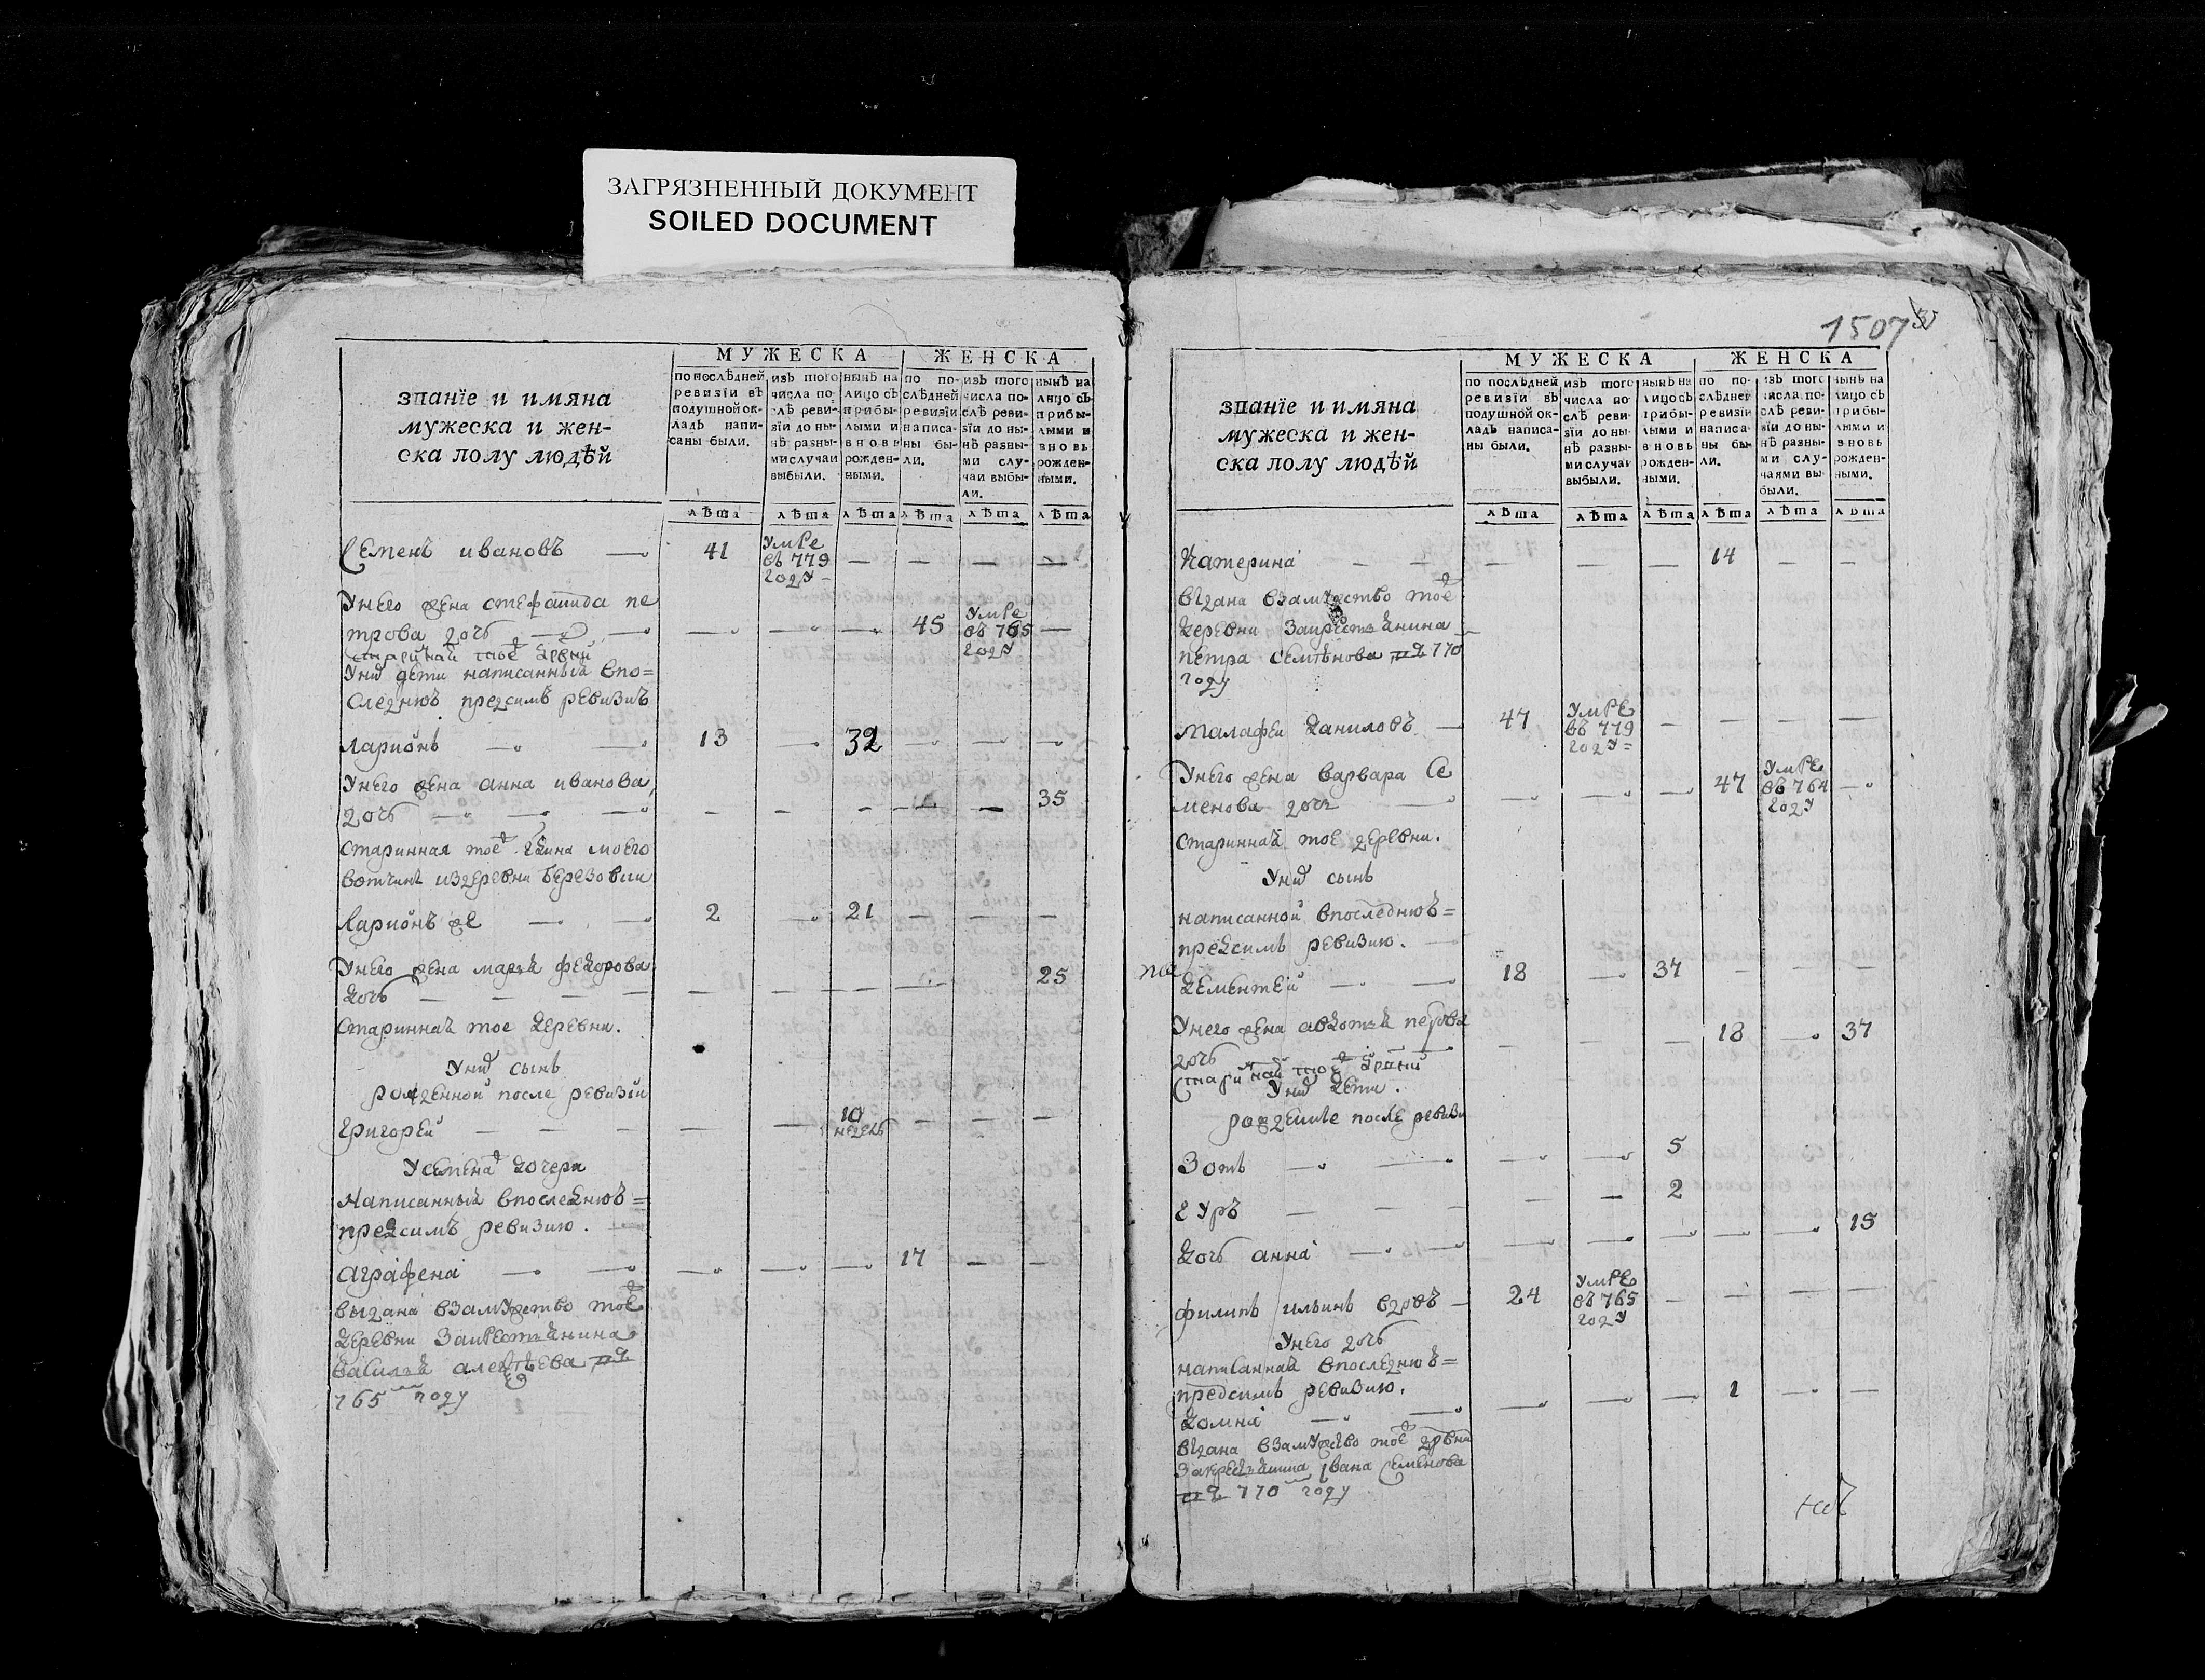 ЗАГРЯЗНЕННЫЙ ДОКУМЕНТ
SOILED DOCUMENT
званїе и имяна
мужеска и жен-
ска полу людѣй
МУЖЕСКА
ЖЕНСКА
по послѣдней ревизїи въ подушной окладъ написаны были.
изъ того числа послѣ ревизїи до нынѣ разными случаи выбыли.
нынѣ на лицо съ прибылыми и вновь рожденными.
по послѣдней ревизїи написаны были.
изъ того числа послѣ ревизїи до нынѣ разными случаи выбыли.
нынѣ на лицо съ прибылыми и вновь рожденными.
лѣта лѣта лѣта лѣта лѣта лѣта
Семенъ ивановъ — 41 умре въ 779 году — — — —
Унего жена стефанида пе
трова дочь — — — — 45 умре въ 765 году —
стариннай тое дрвни
Уних дети написанный впо=
следнюю предсимъ ревизию
ларионъ — 13 — 32 — — —
Унего жена анна иванова
дочь — — — — — — 35
старинная тое
вотчины издеревни березовки
Ларионъ же — 2 — 21 — — —
Унего жена марья федорова
дочь — — — — — — 25
старинная тое деревни.
Уних сынъ
рожденной после ревизии
григорей — — — 10 недель — — —
Усемена дочери
написанный впоследнюю=
предсимъ ревизию.
аграфена — — — — 17 — —
выдана взамужство тое
деревни закрестьянина
василья алексѣева
765 году
1507
званїе и имяна
мужеска и жен-
ска полу людѣй
МУЖЕСКА
ЖЕНСКА
по послѣдней ревизїи въ подушной окладъ написаны были.
изъ того числа послѣ ревизїи до нынѣ разными случаи выбыли.
нынѣ на лицо съ прибылыми и вновь рожденными.
по послѣдней ревизїи написаны были.
изъ того числа послѣ ревизїи до нынѣ разными случаями выбыли.
нынѣ на лицо съ прибылыми и вновь рожденными.
лѣта лѣта лѣта лѣта лѣта лѣта
катерина — — — — 14 — —
выдана взамужство тое
деревни закрестьянина
петра семѣнова 770
году
малафеи даниловъ — 47 умре въ 779 году — — — —
Унего жена варвара се
менова дочь — — — — 47 умре въ 764 году —
старинная тое деревни.
Уних сынъ
написанной впоследнюю=
предсимъ ревизию.
дементей — 18 — 37 — — —
Унего жена авдотья петрова
дочь — — — — 18 — 37
стариннай тое дрвни
Уних дети.
рожденые после ревизи
Зотъ — — — 5
гуръ — — — 2
дочь анна — — — — — — 15
филипъ ильинъ вдовъ — 24 умре въ 765 году — — — —
Унего дочь
написанная впоследнюю=
предсимъ ревизию.
домна — — — — 1 — —
выдана взамужство тое дрвни
закрестьянина ивана семенова
770 году